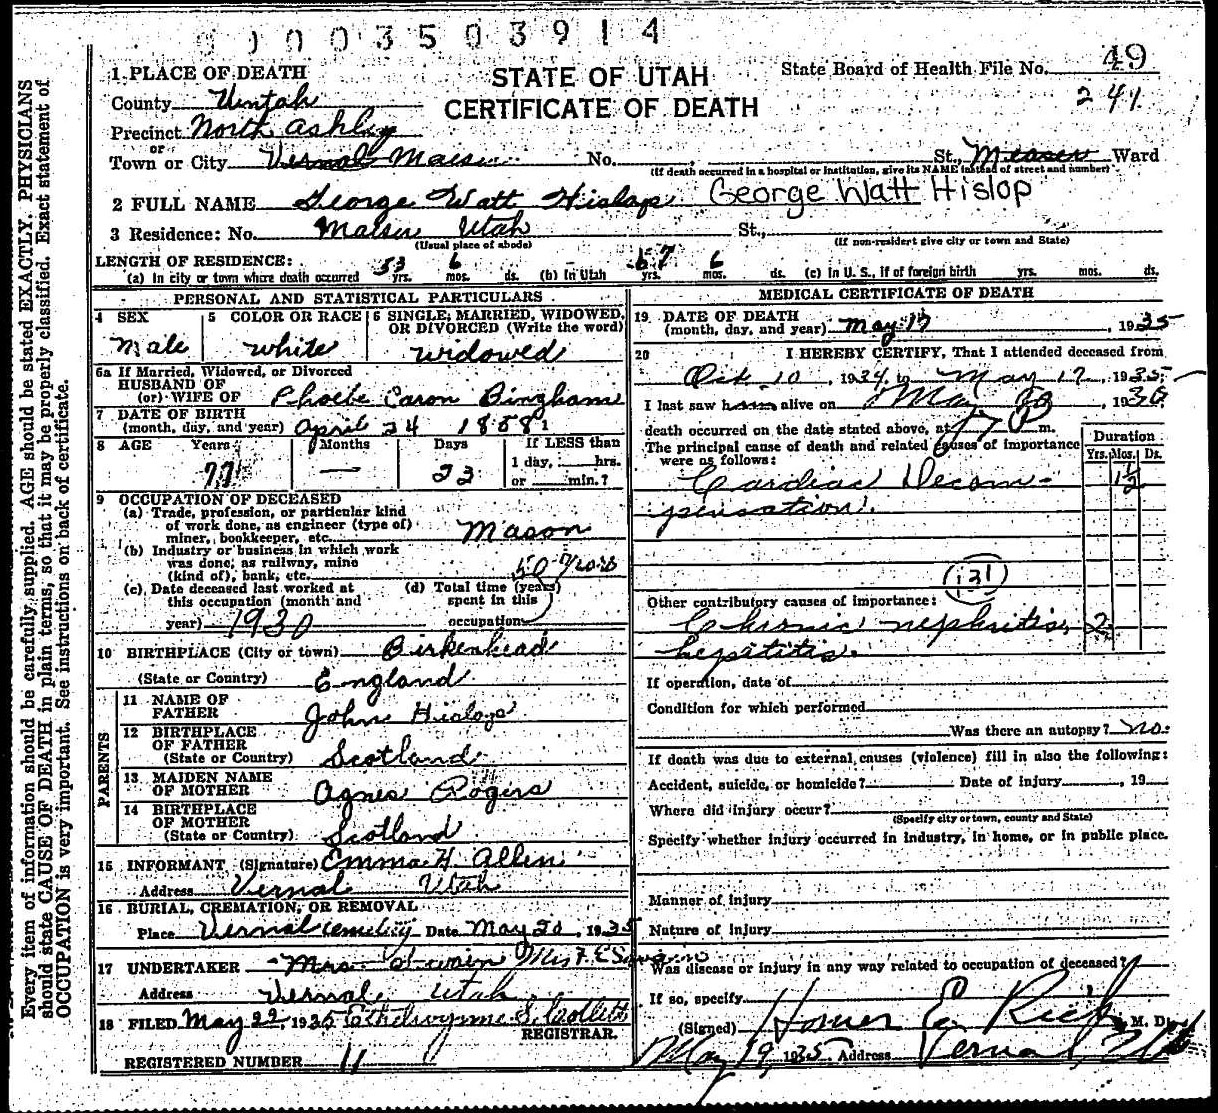 0003503914
STATE OF UTAH
CERTIFICATE OF DEATH
State Board of Health File No. 49
241
1 PLACE OF DEATH
County Uintah
Precinct North Ashley
or
Town or City Vernal Maeser No. St., Measer Ward
(If death occurred in a hospital or institution, give its NAME instead of street and number)
2 FULL NAME George Watt Hislop George Watt Hislop
3 Residence: No. Maeser Utah St.,
(Usual place of abode) (If non-resident give city or town and State)
LENGTH OF RESIDENCE:
(a) In city or town where death occurred 53 yrs. 6 mos. ds. (b) In Utah 67 yrs. 6 mos. ds. (c) In U. S., if of foreign birth yrs. mos. ds.
PERSONAL AND STATISTICAL PARTICULARS
4 SEX Male
5 COLOR OR RACE White
6 SINGLE, MARRIED, WIDOWED, OR DIVORCED (Write the word)
Widowed
6a If Married, Widowed, or Divorced
HUSBAND OF
(or) WIFE OF Phoebe Caron Bingham
7 DATE OF BIRTH
(month, day, and year) April 24 1858
8 AGE Years Months Days If LESS than
77 — 23 1 day, hrs.
or min.?
9 OCCUPATION OF DECEASED
(a) Trade, profession, or particular kind
of work done, as engineer (type of)
miner, bookkeeper, etc. Mason
(b) Industry or business in which work
was done, as railway, mine
(kind of), bank, etc.
(c) Date deceased last worked at
this occupation (month and
year) 1930
(d) Total time (years)
spent in this
occupation 50 years
10 BIRTHPLACE (City or town) Birkenhead
(State or Country) England
PARENTS
11 NAME OF
FATHER John Hislop
12 BIRTHPLACE
OF FATHER
(State or Country) Scotland
13 MAIDEN NAME
OF MOTHER Agnes Rogers
14 BIRTHPLACE
OF MOTHER
(State or Country) Scotland
15 INFORMANT (Signature) Emma H. Allen
Address Vernal Utah
16 BURIAL, CREMATION, OR REMOVAL
Place Vernal Cemetery Date May 20, 1935
17 UNDERTAKER Mrs Swain Mrs F. E Swain
Address Vernal Utah
18 FILED May 22, 1935
REGISTRAR.
REGISTERED NUMBER 11
MEDICAL CERTIFICATE OF DEATH
19 DATE OF DEATH
(month, day, and year) May 17, 1935
20 I HEREBY CERTIFY, That I attended deceased from
Oct 10, 1934, to May 17, 1935
I last saw h alive on May
death occurred on the date stated above, at m.
The principal cause of death and related causes of importance
were as follows:
Duration
Yrs. Mos. Ds.
Cardiac Decom-
pensation. 1½
131
Other contributory causes of importance:
Chronic nephritis, 2
hepititis.
If operation, date of
Condition for which performed
Was there an autopsy? No.
If death was due to external causes (violence) fill in also the following:
Accident, suicide, or homicide? Date of injury, 19
Where did injury occur?
(Specify city or town, county and State)
Specify whether injury occurred in industry, in home, or in public place.
Manner of injury
Nature of injury
Was disease or injury in any way related to occupation of deceased?
If so, specify
(Signed) Homer E. Rich, M. D.
May 19, 1935 Address Vernal, Utah
Every item of information should be carefully supplied. AGE should be stated EXACTLY. PHYSICIANS
should state CAUSE OF DEATH in plain terms, so that it may be properly classified. Exact statement of
OCCUPATION is very important. See instructions on back of certificate.